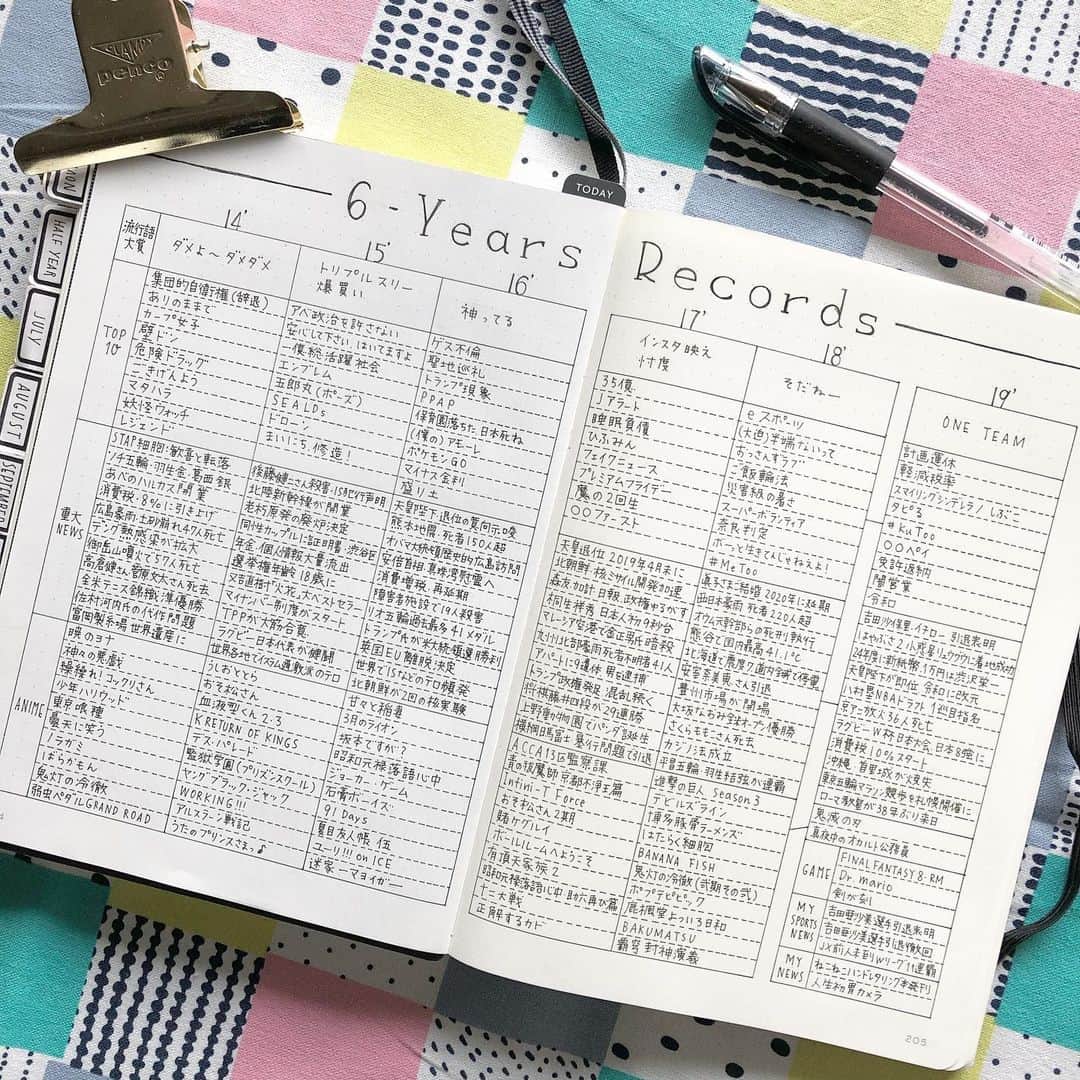 GLAMPY
penco
TODAY
MON
HALF YEAR
JULY
AUGUST
SEPTEMBER
6-Years Records
流行語大賞
14'
ダメよ〜ダメダメ
15'
トリプルスリー
爆買い
16'
神ってる
17'
インスタ映え
忖度
18'
そだねー
19'
ONE TEAM
TOP 10
集団的自衛権(辞退)
ありのままで
カープ女子
壁ドン
危険ドラッグ
ごきげんよう
マタハラ
妖怪ウォッチ
レジェンド
アベ政治を許さない
安心して下さい、はいてますよ
一億総活躍社会
エンブレム
五郎丸(ポーズ)
SEALDs
ドローン
まいにち、修造!
ゲス不倫
聖地巡礼
トランプ現象
PPAP
保育園落ちた日本死ね
(僕の)アモーレ
ポケモンGO
マイナス金利
盛り土
35億
Jアラート
睡眠負債
ひふみん
フェイクニュース
プレミアムフライデー
魔の2回生
○○ファースト
eスポーツ
(大迫)半端ないって
おっさんずラブ
ご飯論法
災害級の暑さ
スーパーボランティア
奈良判定
ボーっと生きてんじゃねえよ!
#MeToo
計画運休
軽減税率
スマイリングシンデレラ/しぶこ
タピる
#KuToo
○○ペイ
免許返納
闇営業
令和
重大NEWS
STAP細胞:歓喜と転落
ソチ五輪・羽生金・葛西銀
あべのハルカス開業
消費税・8%に引き上げ
広島豪雨・土砂崩れ47人死亡
デング熱感染が拡大
御岳山噴火で57人死亡
高倉健さん菅原文太さん死去
全米テニス錦織準優勝
佐村河内氏の代作問題
富岡製糸場世界遺産に
後藤健二さん殺害・ISが犯行声明
北陸新幹線が開業
同性カップルに証明書・渋谷区
年金個人情報大量流出
選挙権年齢18歳に
又吉直樹『火花』大ベストセラー
マイナンバー制度がスタート
TPPが大筋合意
ラグビー日本代表が健闘
世界各地でイスラム過激派のテロ
天皇陛下 退位の意向示唆
熊本地震・死者150人超
オバマ大統領歴史的広島訪問
安倍首相、真珠湾慰霊へ
消費増税、再延期
障害者施設で19人殺害
リオ五輪過去最多41メダル
トランプ氏が米大統領選勝利
英国EU離脱決定
世界でISなどのテロ頻発
北朝鮮が2回の核実験
天皇退位 2019年4月末に
北朝鮮 核ミサイル開発加速
森友加計 日報、政権ゆるがす
桐生祥秀 日本人初9秒台
マレーシア空港で金正男氏暗殺
九州北部豪雨死者不明者41人
アパートに9遺体 男を逮捕
トランプ政権発足 混乱続く
将棋藤井四段が29連勝
上野動物園でパンダ誕生
横綱日馬富士 暴行問題で引退
眞子さまご結婚 2020年に延期
西日本豪雨 死者220人超
オウム元幹部らの死刑執行
熊谷で国内最高41.1℃
北海道で震度7 道内全域で停電
安室奈美恵さん引退
豊洲市場が開場
大坂なおみ全米オープン優勝
さくらももこさん死去
カジノ法成立
平昌五輪 羽生結弦が連覇
吉田沙保里・イチロー 引退表明
はやぶさ2 小惑星リュウグウに着地成功
24年度に新紙幣、1万円は渋沢栄一
天皇陛下が即位、令和に改元
八村塁NBAドラフト1巡目指名
京アニ放火36人死亡
ラグビーW杯日本大会、日本8強に
消費税10%スタート
沖縄、首里城が火災
東京五輪マラソン競歩を札幌開催に
ローマ教皇が38年ぶり来日
ANIME
暁のヨナ
神々の悪戯
繰繰れ!コックリさん
少年ハリウッド
東京喰種
曇天に笑う
ノラガミ
ばらかもん
鬼灯の冷徹
弱虫ペダルGRAND ROAD
うしおととら
おそ松さん
血液型くん2・3
K RETURN OF KINGS
デス・パレード
監獄学園(プリズンスクール)
ヤングブラック・ジャック
WORKING!!!
アルスラーン戦記
うたのプリンスさまっ♪
甘々と稲妻
3月のライオン
坂本ですが?
昭和元禄落語心中
ジョーカー・ゲーム
石膏ボーイズ
91Days
夏目友人帳 伍
ユーリ!!! on ICE
迷家ーマヨイガー
ACCA13区監察課
青の祓魔師 京都不浄王篇
Infini-T Force
おそ松さん2期
賭ケグルイ
ボールルームへようこそ
有頂天家族2
昭和元禄落語心中-助六再び篇
十二大戦
正解するカド
進撃の巨人 season3
デビルズライン
博多豚骨ラーメンズ
はたらく細胞
BANANA FISH
鬼灯の冷徹(弐期その弐)
ポプテピピック
鹿楓堂よついろ日和
BAKUMATSU
覇穹 封神演義
鬼滅の刃
真夜中のオカルト公務員
GAME
FINAL FANTASY 8・RM
Dr.mario
剣が刻
MY SPORTS NEWS
吉田亜沙美選手引退表明
吉田亜沙美選手引退撤回
JX前人未到Wリーグ11連覇
MY NEWS
ねこねこハンドレタリング本発刊
人生初胃カメラ
205